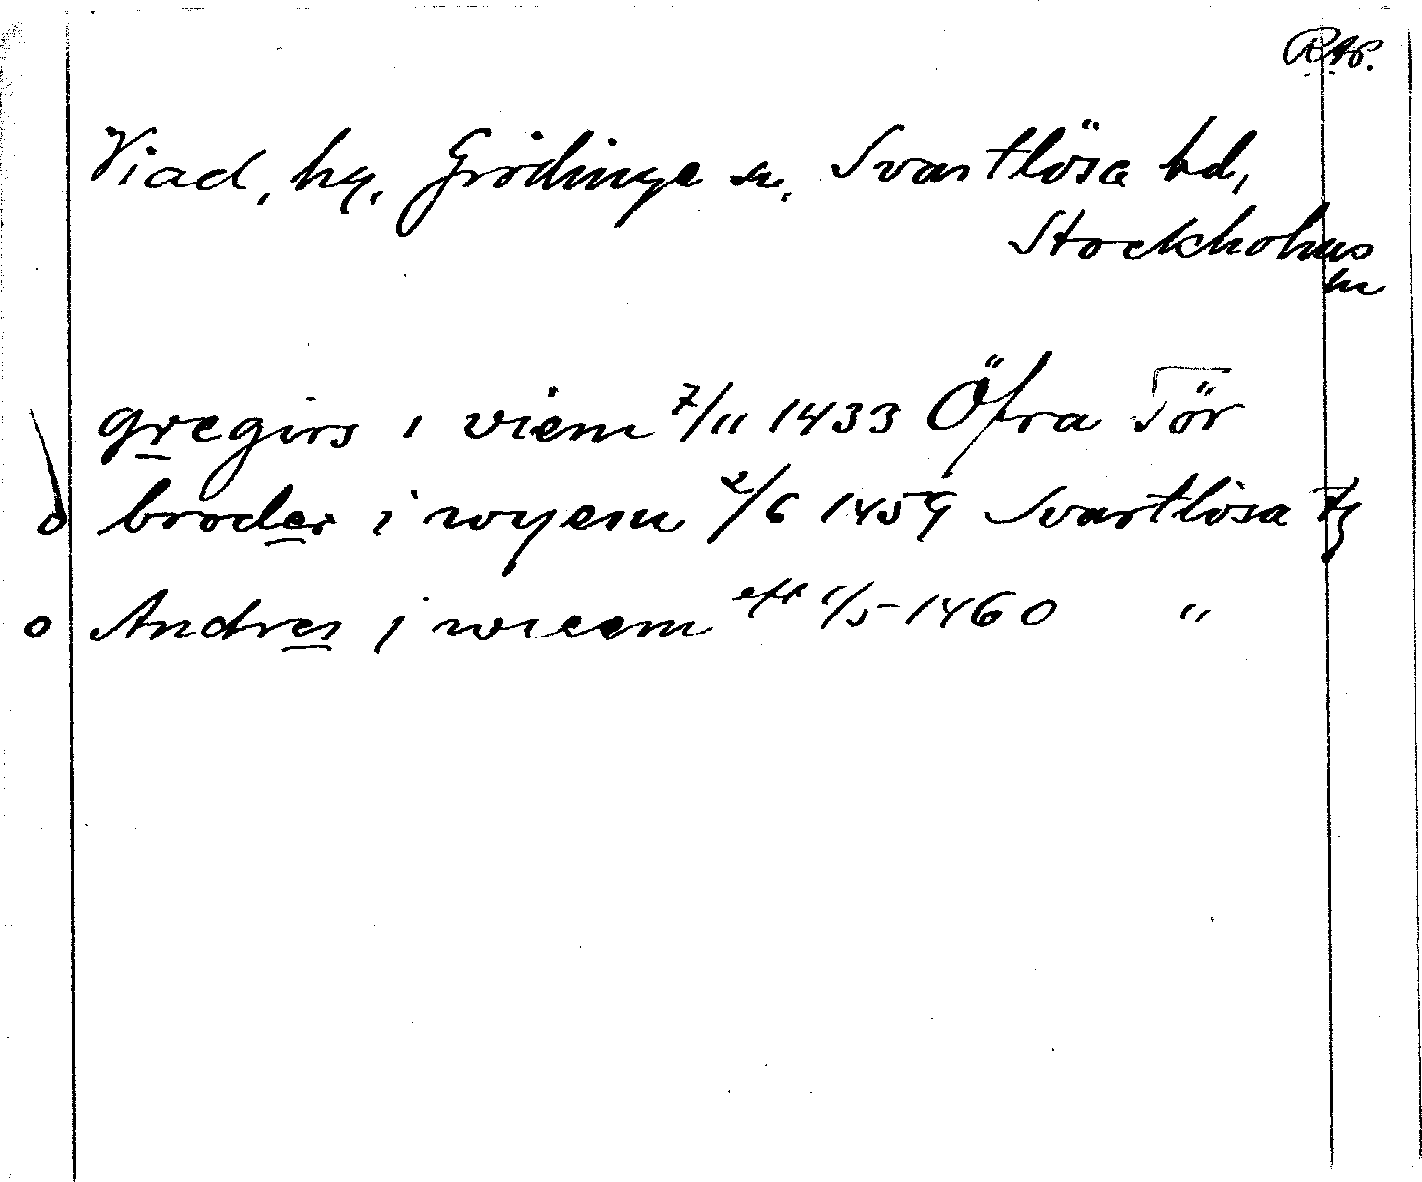 RAp.
Viad, hg, Grödinge sn, Svartlösa hd,
Stockholms
ln
gregirs i viem 7/11 1433 Öfra Tör
broder i wyem 2/6 1459 Svartlösa Tg
Andres j wieem eft 1/5 1460 "